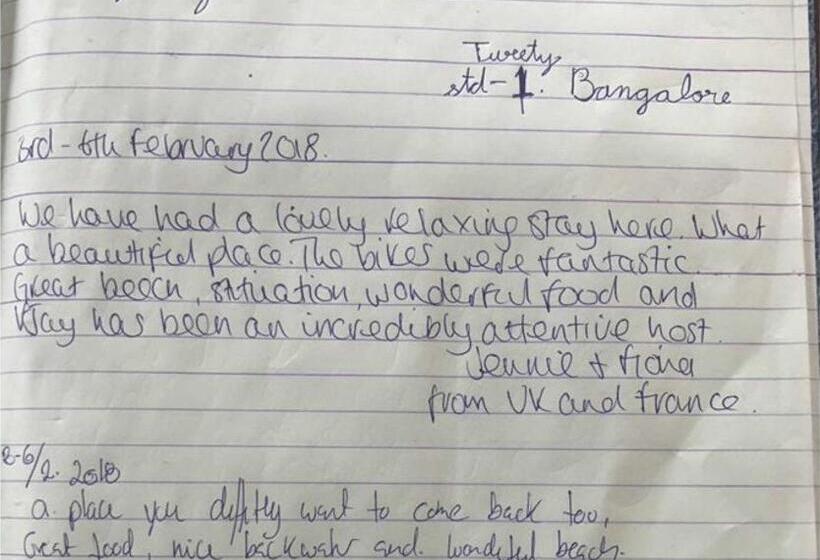 Tweety
std-1. Bangalore
3rd - 6th February 2018.
We have had a lovely relaxing stay here. What
a beautiful place. The bikes were fantastic.
Great beach, situation, wonderful food and
Vijay has been an incredibly attentive host.
Jennie + Fiona
from UK and France.
2-6/2. 2018
a place you want to come back too,
Great food, nice and beach.